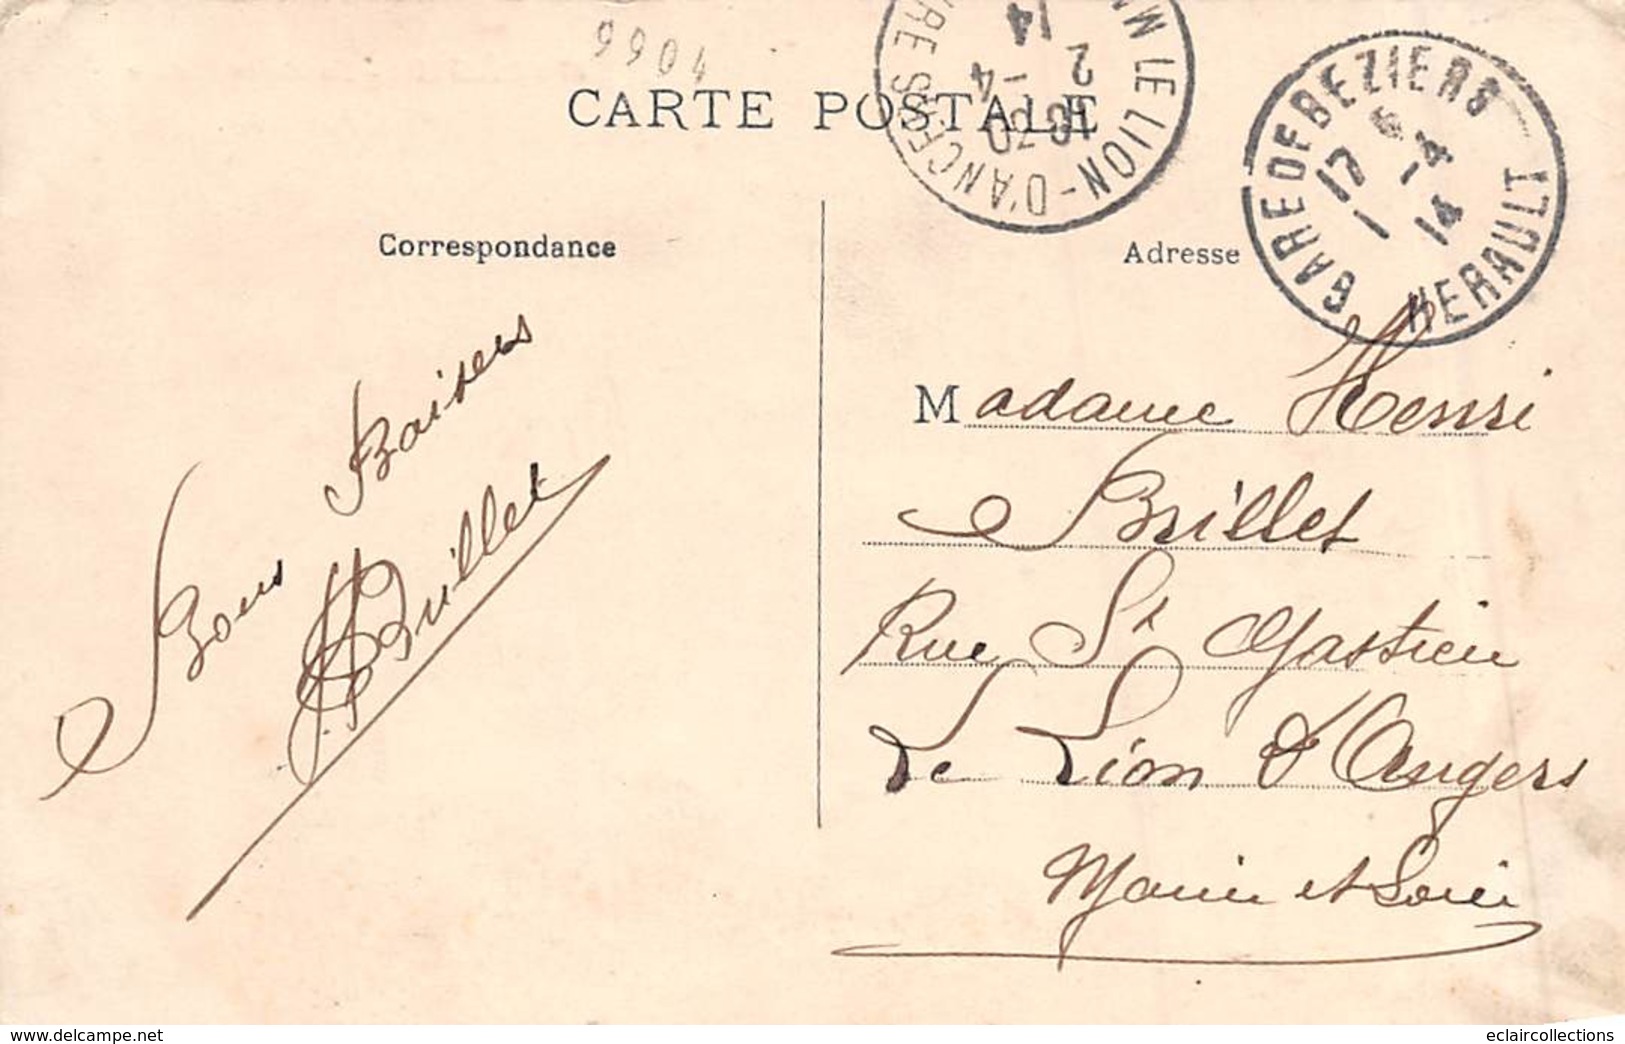 4066
CARTE POSTALE
LE LION-D'ANGERS
18 30
2 - 4
14
GARE DE BEZIERS
HERAULT
17
1 - 4
14
Correspondance
Adresse
Bons Baisers
HBrillet
Madame Henri
Brillet
Rue St Gastien
Le Lion d'Angers
Maine et Loire
www.delcampe.net
eclaircollections